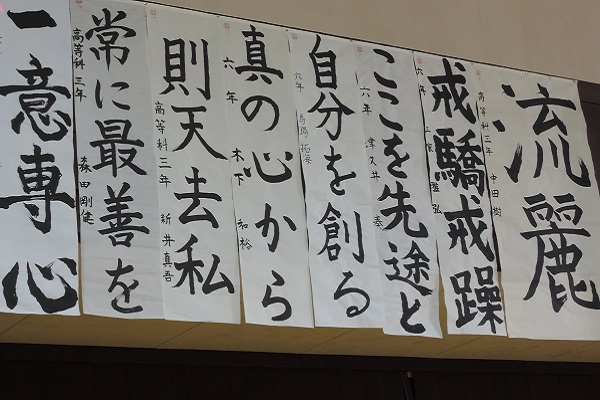 流麗
高等科三年 中田 樹
戒驕戒躁
六年
ここを先途と
六年 津久井 奏
自分を創る
六年
真の心から
六年 木下 和裕
則天去私
高等科三年 新井真吾
常に最善を
高等科三年 森田剛健
一意専心